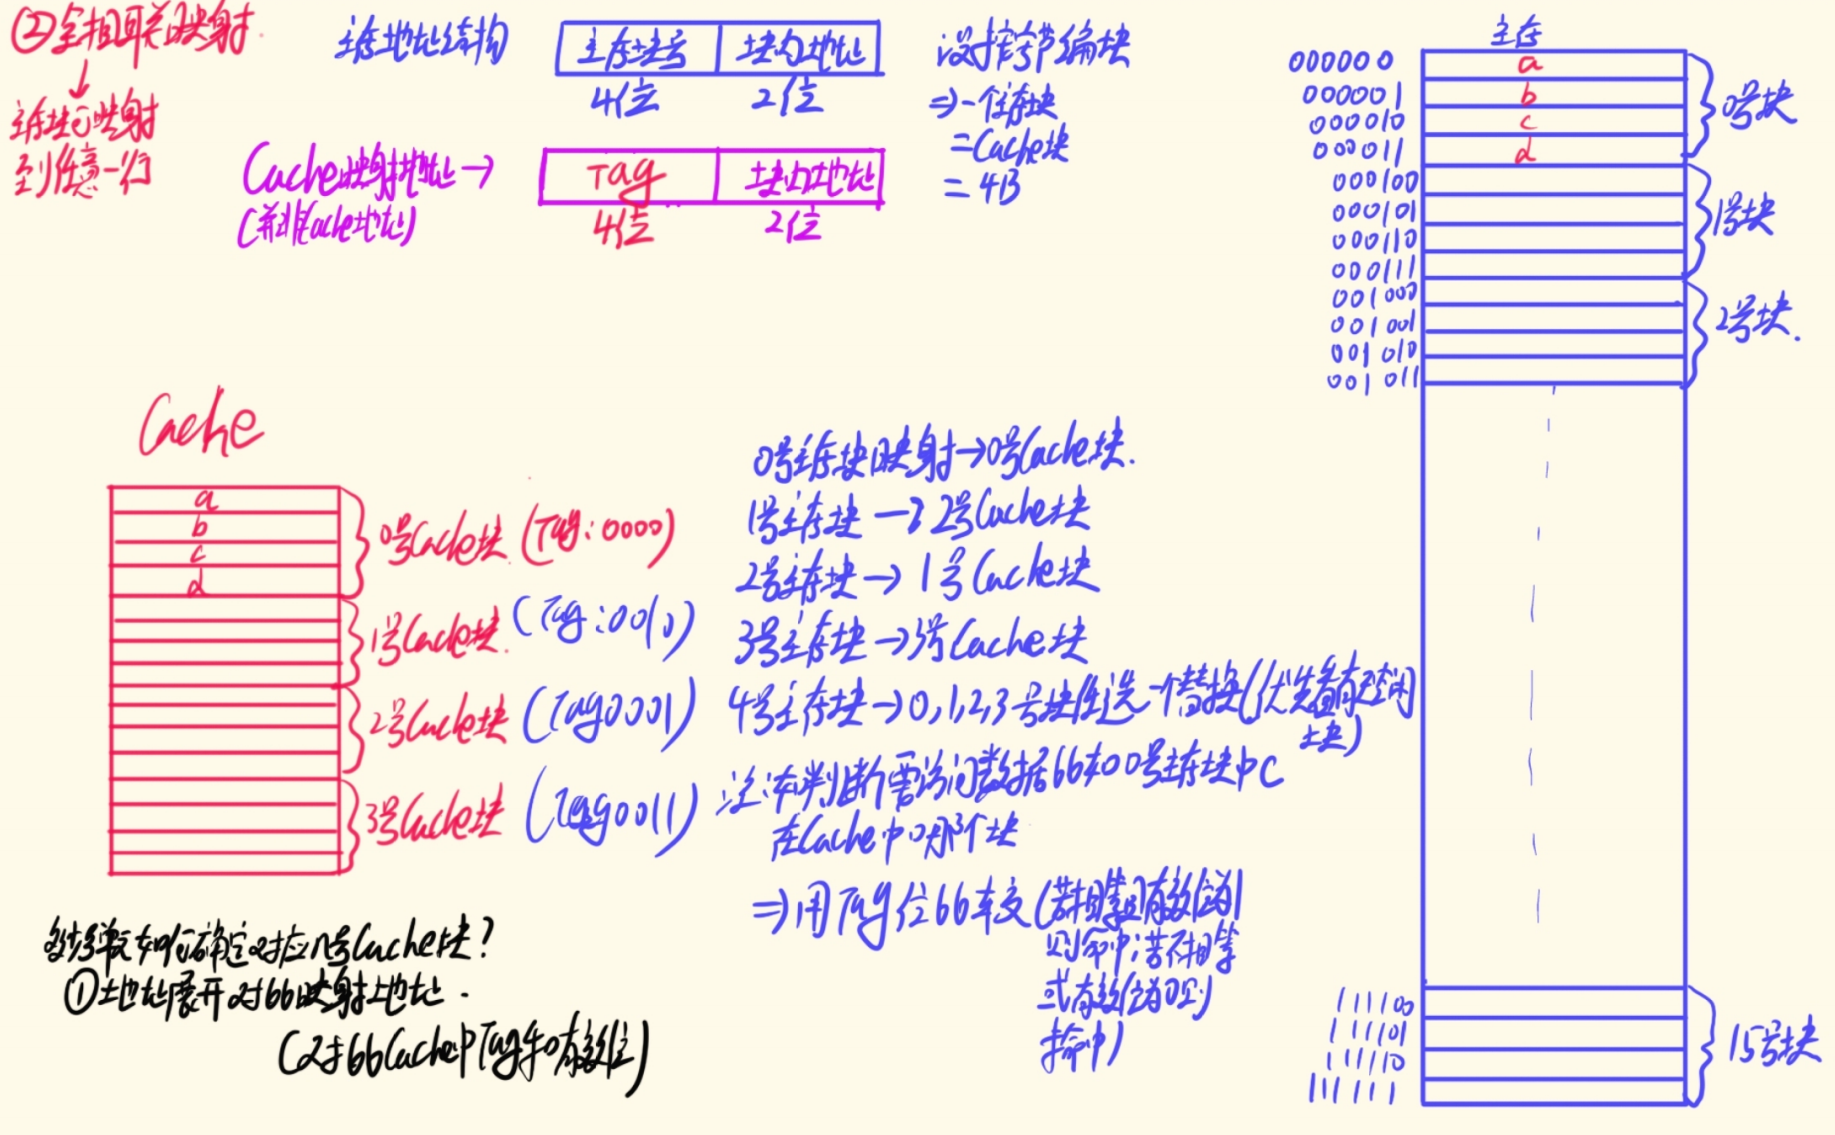 ②全相联映射.
↓
主存块可映射
到任意一行
主存地址结构
主存块号 块内地址
4位 2位
设按字节编块
⇒一个主存块
=Cache块
=4B
Cache映射地址→
(并非Cache地址)
Tag 块内地址
4位 2位
主存
000000 a
000001 b
000010 c
000011 d
0号块
000100
000101
000110
000111
1号块
001000
001001
001010
001011
2号块.
111100
111101
111110
111111
15号块
Cache
a
b
c
d
0号Cache块 (Tag:0000)
1号Cache块. (Tag:0010)
2号Cache块 (Tag0001)
3号Cache块 (Tag0011)
0号主存块映射→0号Cache块.
1号主存块→2号Cache块
2号主存块→1号Cache块
3号主存块→3号Cache块
4号主存块→0,1,2,3号块任选一个替换(优先看有无空闲
块)
注:如判断需访问数据比如0号主存块中C
在Cache中哪个块
⇒用Tag位比较(若相等且有效位为1
则命中;若不相等
或有效位为0则
不命中)
如何确定对应几号Cache块?
①地址展开对比映射地址.
(对比Cache中Tag和有效位)